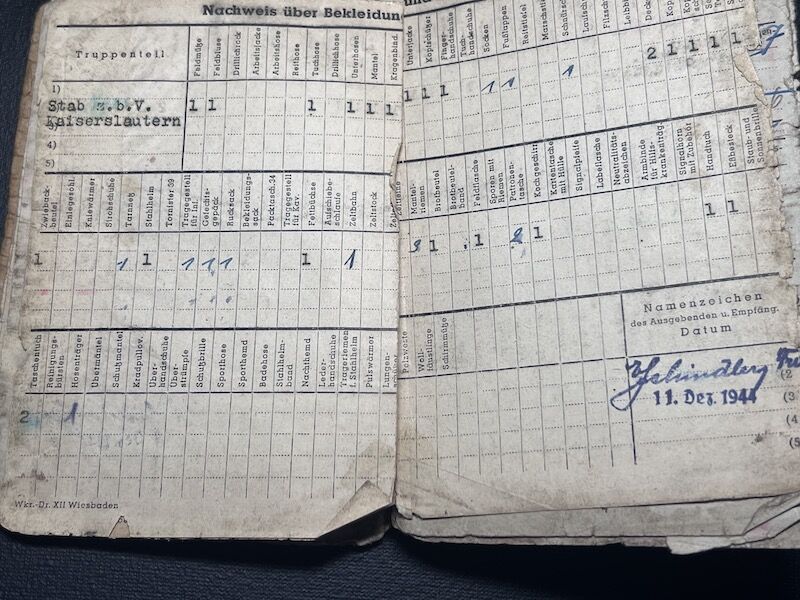 Nachweis über Bekleidun und
Truppenteil
Feldmütze
Feldbluse
Drilljack
Arbeitsjacke
Arbeitshose
Reithose
Tuchhose
Drillichhose
Unterhosen
Mantel
Kragenbind.
Unterjacke
Kopfschützer
Finger-handschuhe
Tuch-handschuhe
Socken
Fußlappen
Reitstiefel
Marschstie
Schnürs
1)
Stab z.b.V. 1 1 1 1 1 1 1 1 1 1 1 1 2 1 1 1 1
Kaiserslautern
4)
5)
Zwieback-beutel
Einlegesohl.
Kniewärmer
Strohschuhe
Tarnnetz
Stahlhelm
Tornister 39
Tragegestell für Inf.
Gefechts-gepäck
Rucksack
Bekleidungs-sack
Packtasch. 34
Tragegestell für Kav.
Fettbüchse
Aufschiebe-schlaufe
Zeltbahn
Zeltstock
Zeltleine
Mantel-riemen
Brotbeutel
Brotbeutel-band
Feldflasche
Sporen mit Riemen
Patronen-tasche
Kochgeschirr
Kartentasche mit Hülle
Signalpfeife
Labeflasche
Neutralitäts-abzeichen
Armbinde für Hilfs-krankenträg.
Signalhorn mit Zubehör
Handtuch
Eßbesteck
Staub- und Sonnenbrille
1 1 1 1 1 1 1 1 3 1 1 2 1 1 1
Taschentuch
Reinigungs-bürsten
Hosenträger
Übermäntel
Schutzmantel
Kradpullov.
Über-handschuhe
Über-strümpfe
Schutzbrille
Sporthose
Sporthemd
Badehose
Stahlhelm-band
Nachthemd
Leder-handschuhe
Trageriemen f. Stahlhelm
Pulswärmer
Lungen-
Pelzweste
Woll-fäustlinge
Schirmmütze
Namenzeichen
des Ausgebenden u. Empfäng.
Datum
2 1
11. Dez. 1944
(2
(3
(4
(5
Wkr.-Dr. XII Wiesbaden